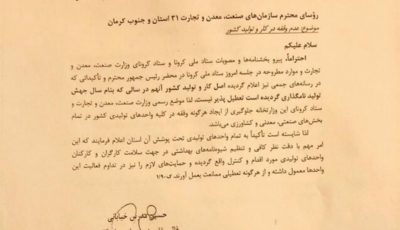 رؤسای محترم سازمان‌های صنعت، معدن و تجارت ۳۱ استان و جنوب کرمان
موضوع: عدم وقفه در کار و تولید کشور
سلام علیکم
احتراماً، پیرو بخشنامه‌ها و مصوبات ستاد ملی کرونا و ستاد کرونای وزارت صنعت، معدن و
تجارت و موارد مطروحه در جلسه امروز ستاد ملی کرونا در محضر رئیس جمهور محترم و تأکیداتی که
در رسانه‌های جمعی نیز اعلام گردیده اصل کار و تولید کشور آنهم در سالی که بنام سال جهش
تولید نامگذاری گردیده است تعطیل پذیر نیست. لذا موضع رسمی وزارت صنعت، معدن و تجارت و
ستاد کرونای این وزارتخانه جلوگیری از ایجاد هرگونه وقفه در کلیه واحدهای تولیدی کشور در تمام
بخش‌های صنعتی، معدنی و کشاورزی می‌باشد.
لذا شایسته است تأکیداً به تمام واحدهای تولیدی تحت پوشش آن استان اعلام فرمایند که این
امر مهم با دقت نظر کافی و تنظیم شیوه‌نامه‌های بهداشتی در جهت سلامت کارگران و کارکنان
واحدهای تولیدی مورد اقدام و کنترل واقع گردیده و حمایت‌های لازم را نیز در تداوم فعالیت این
واحدها معمول داشته و از هرگونه تعطیلی ممانعت بعمل آورند.
حسین مدرس خیابانی